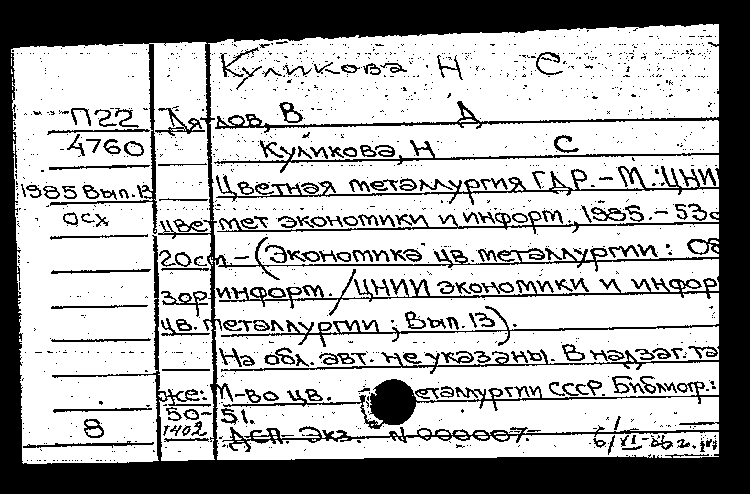 Куликова Н С
П22 Дятлов, В Д
4760 Куликова, Н С
1985 Вып.13 Цветная металлургия ГДР. – М.: ЦНИИ
осх цветмет экономики и информ., 1985. – 53с
20см – (Экономика цв. металлургии: Об
зор. информ. / ЦНИИ экономики и инфор
цв. металлургии; Вып. 13).
На обл. авт. не указаны. В надзаг. та
же: М-во цв. металлургии СССР. Библиогр.:
50-51.
8 1402 ДСП. Экз. N 000007.